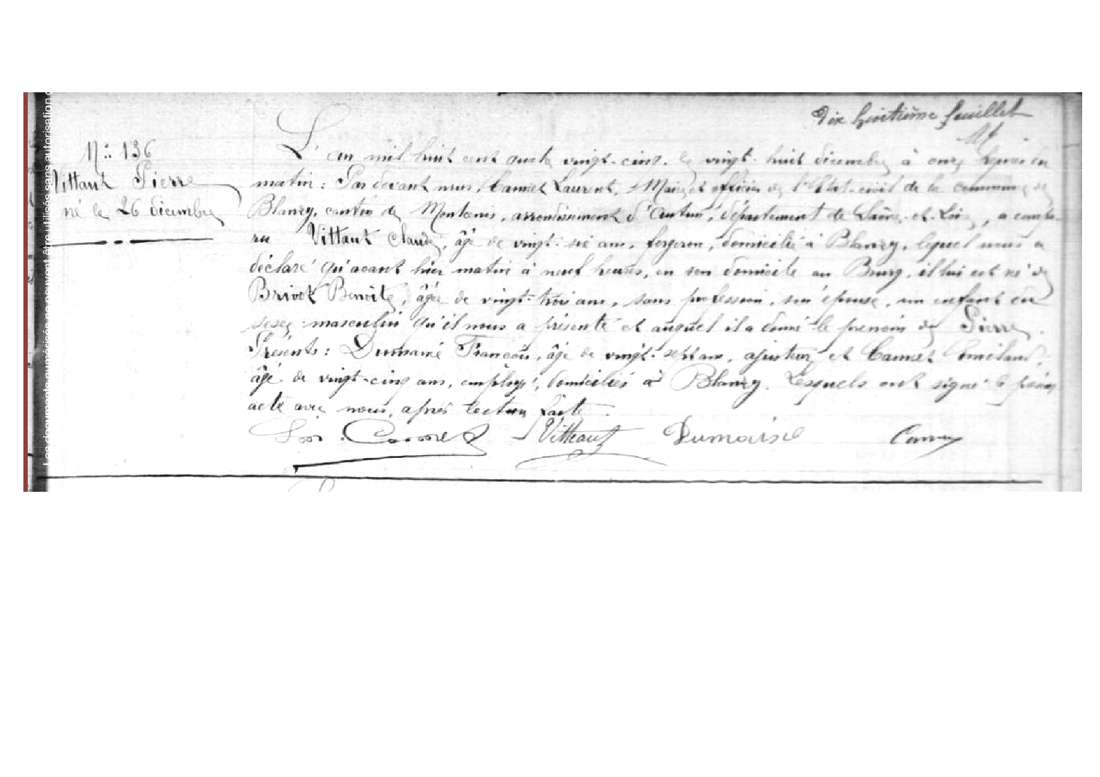 Dix huitième feuillet
N° 136
Vittaut Pierre
né le 26 décembre
L'an mil huit cent quatre vingt-cinq, le vingt-huit décembre à onze heures du
matin : Par devant nous Cannet Laurent, Maire et officier de l'Etat-civil de la commune de
Blanzy, canton de Montcenis, arrondissement d'Autun, département de Saône-et-Loire, a compa-
ru Vittaut Claude, âgé de vingt-six ans, forgeron, domicilié à Blanzy, lequel nous a
déclaré qu'avant hier matin à neuf heures, en son domicile au Bourg, il lui est né de
Brivot Benoite, âgée de vingt-trois ans, sans profession, son épouse, un enfant du
sexe masculin qu'il nous a présenté et auquel il a donné le prénom de Pierre.
Présents : François, âgé de vingt-sept ans, ajusteur et Cannet Emiland,
âgé de vingt-cinq ans, employé, domiciliés à Blanzy. Lesquels ont signé le présent
acte avec nous, après lecture faite.
Cannet Vittaut Dumoise Cannet